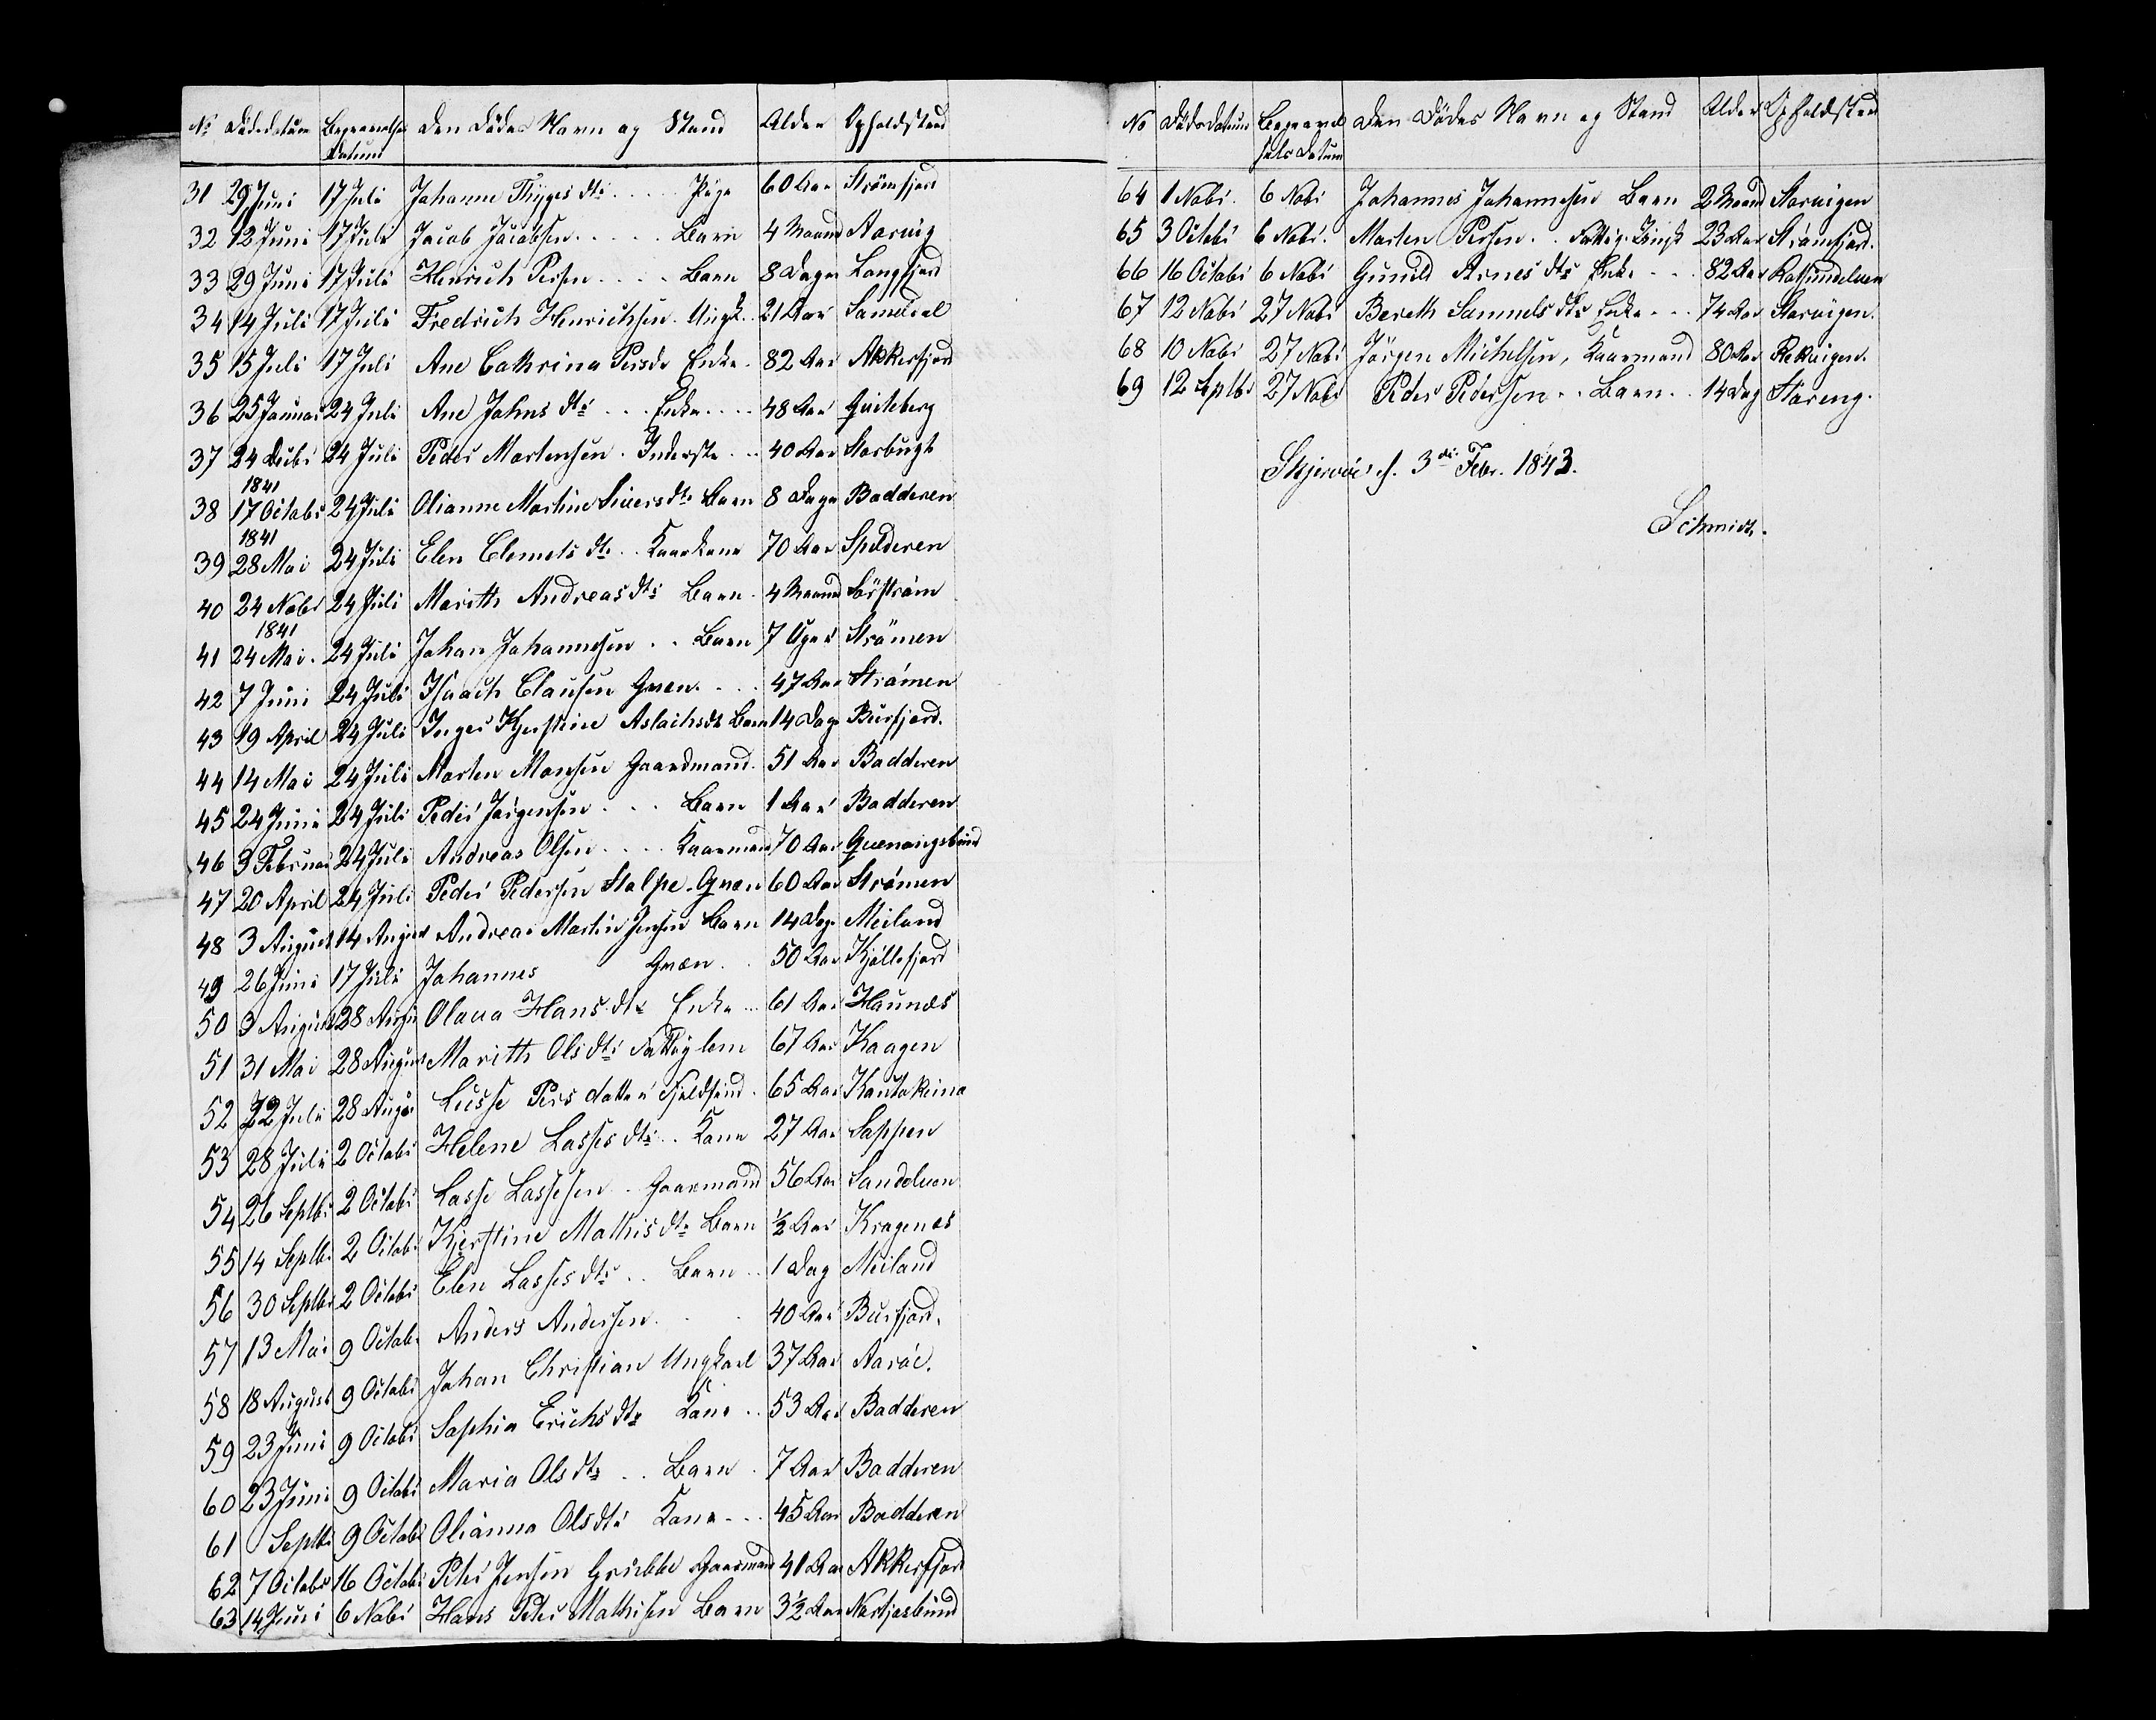 No Dödsdatum Begravelses Datum Den Dödes Navn og Stand Alder Opholdsted
31 29 Juni 17 Juli Johanne Thyges dtr .... Pige 60 Aar Strömfjord
32 12 Juni 17 Juli Jacob Jacobsen ..... Barn 4 Maaned Storvig
33 29 Juni 17 Juli Henrich Persen .... Barn 8 Dage Langfjord
34 14 Juli 17 Juli Fredrich Henrichsen. Ungk. 21 Aar Samuelel
35 15 Juli 17 Juli Ane Cathrina Persdr Enke. 82 Aar Akkerfjord
36 25 Januar 24 Juli Ane Johns dtr ... Enke .... 48 Aar Quiteberg
37 24 Decbr 1841 24 Juli Peder Mortensen. Inderste ... 40 Aar Storbugt
38 17 Octobr 1841 24 Juli Olianne Martine Siversdtr Barn 8 Dage Badderen
39 28 Mai 24 Juli Elen Clemets dtr .. Kaarkone 70 Aar Spilderen
40 24 Nobr 1841 24 Juli Marith Andreas dtr Barn. 4 Maaned Sörström
41 24 Mai. 24 Juli Johan Johannesen .. Barn 7 Uger Strömen
42 7 Juni 24 Juli Isaach Clausen Qvæn. ... 47 Aar Strömen
43 19 April 24 Juli Inger Kjerstine Aslachsdr Barn 14 Dage Burfjord.
44 14 Mai 24 Juli Morten Monsen Gaardmand. 51 Aar Badderen
45 24 Juni 24 Juli Peder Jörgensen ... Barn 1 Aar Badderen
46 3 Februar 24 Juli Andreas Olsen .... Kaarmand 70 Aar Quænangsbund
47 20 April 24 Juli Peder Pedersen Stolpe. Qvæn 60 Aar Strömen
48 3 August 14 August Andreas Martin Jensen Barn 14 Dage Meiland
49 26 Juni 17 Juli Johannes Qvæn .. 50 Aar Kjöllefjord
50 3 August 28 August Olava Hans dtr Enke ... 61 Aar Haunæs
51 31 Mai 28 August Marith Ols dtr Fattiglem 67 Aar Kaagen
52 22 Juli 28 August Lusse Pers datter Fjeldfind. 65 Aar Kautokeino
53 28 Juli 2 Octobr Helene Lasses dtr .. Kone 27 Aar Sappen
54 26 Septbr 2 Octobr Lasse Lassesen . Gaarmand 56 Aar Sandelven
55 14 Septbr 2 Octobr Kjerstine Mathis dtr Barn ½ Aar Kragenæs
56 30 Septbr 2 Octobr Elen Lasses dtr .. Barn .. 1 Dag Meiland
57 13 Mai 9 Octobr Anders Andersen. . . 40 Aar Burfjord.
58 18 August 9 Octobr Johan Christian Ungkarl 37 Aar Aaröe.
59 23 Juni 9 Octobr Sophia Erichs dtr Kone .. 53 Aar Badderen
60 23 Juni 9 Octobr Maria Ols dtr .. Barn . 7 Aar Badderen
61 Septbr 9 Octobr Olianna Ols dtr Kone ... 45 Aar Badderen
62 7 Octobr 16 Octobr Peter Jensen Grubbe Gaarmand 41 Aar Akkerfjord
63 14 Juni 6 Nobr Hans Peter Mathisen Barn 3½ Aar
No Dödsdatum Begravelses Datum Den Dödes Navn og Stand Alder Opholdsted
64 1 Nobr. 6 Nobr Johannes Johannesen Barn 2 Maaned Storvigen
65 3 Octobr 6 Nobr. Morten Persen .. Fattig. 23 Aar Strömfjord.
66 16 Octobr 6 Nobr Gunild Arnes dtr Enke ... 82 Aar Rotsundelven
67 12 Nobr 27 Nobr Bereth Samuels dtr Enke ... 74 Aar Storvigen.
68 10 Nobr 27 Nobr Jörgen Michelsen, Kaarmand 80 Aar Rekvigen.
69 12 Septbr 27 Nobr Peder Pedersen .. Barn .. 14 Dag Storeng.
Skjervöe d. 3die Febr. 1843.
Schmidt.